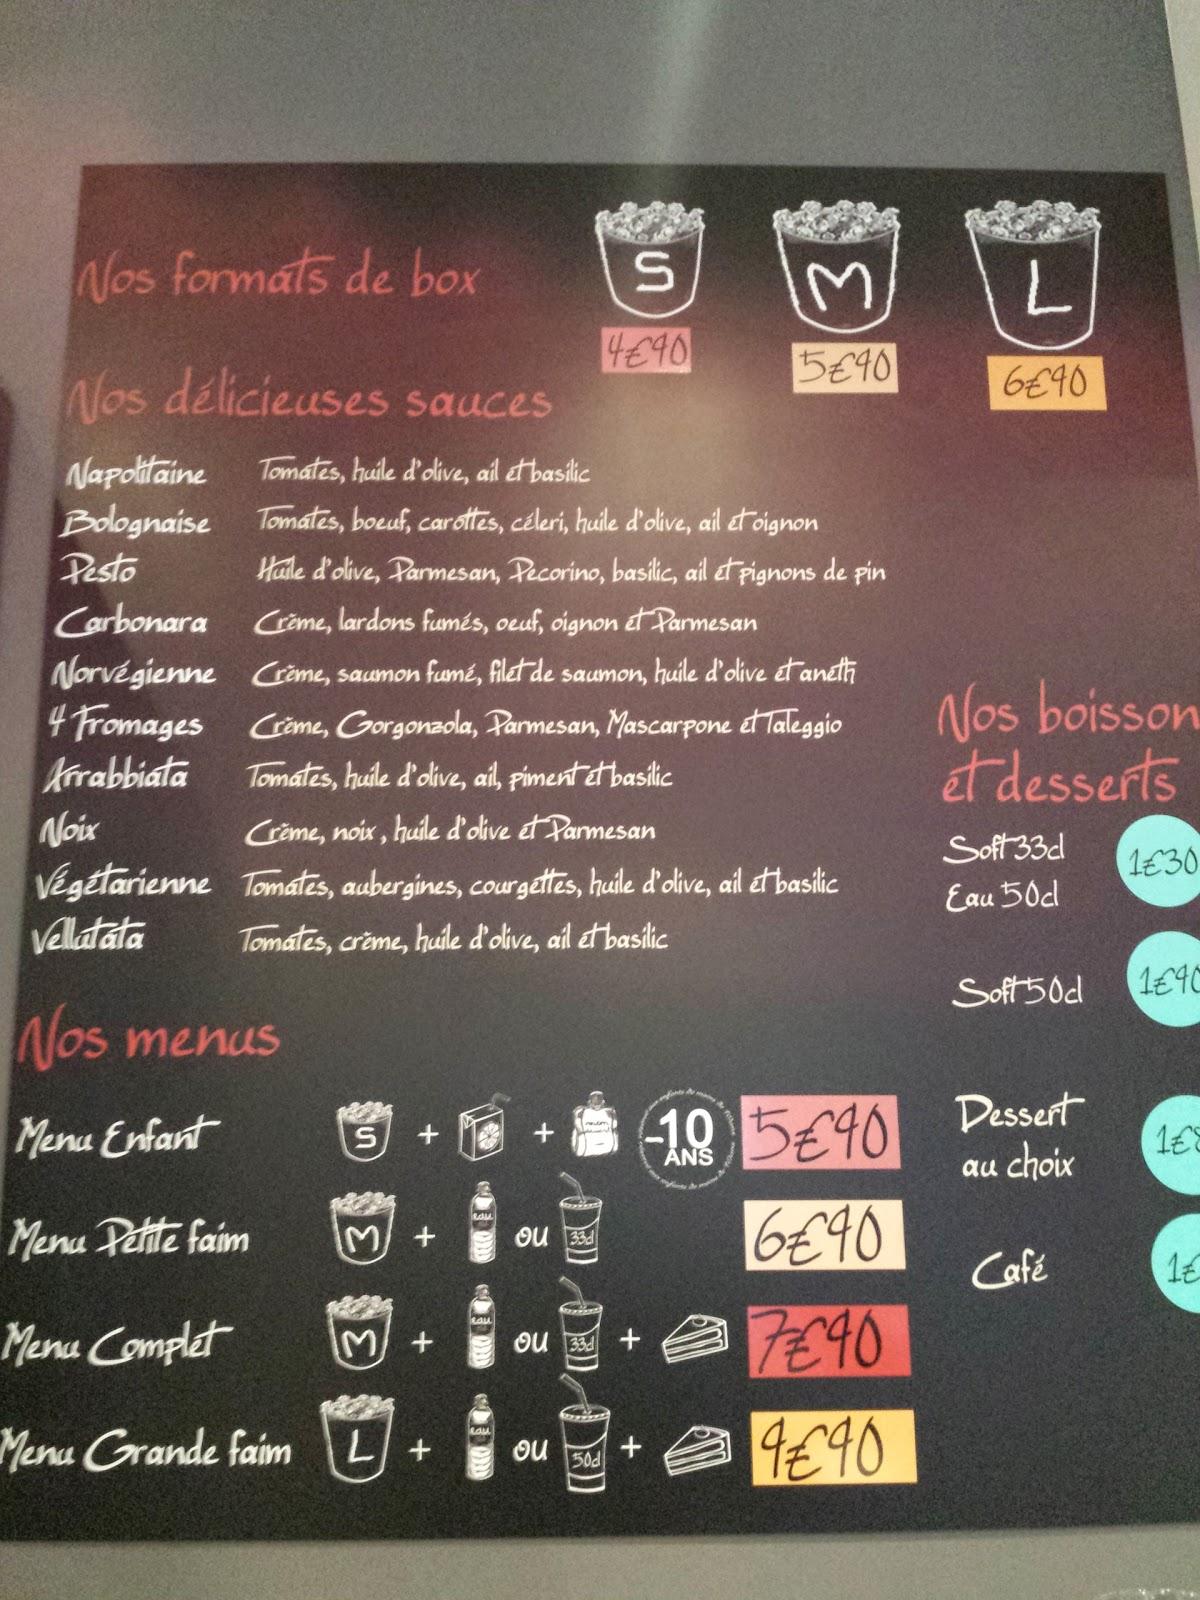 Nos formats de box
S
M
L
4€90
5€90
6€90
Nos délicieuses sauces
Napolitaine Tomates, huile d'olive, ail et basilic
Bolognaise Tomates, boeuf, carottes, céleri, huile d'olive, ail et oignon
Pesto Huile d'olive, Parmesan, Pecorino, basilic, ail et pignons de pin
Carbonara Crème, lardons fumés, oeuf, oignon et Parmesan
Norvégienne Crème, saumon fumé, filet de saumon, huile d'olive et aneth
4 Fromages Crème, Gorgonzola, Parmesan, Mascarpone et Taleggio
Arrabbiata Tomates, huile d'olive, ail, piment et basilic
Noix Crème, noix, huile d'olive et Parmesan
Végétarienne Tomates, aubergines, courgettes, huile d'olive, ail et basilic
Vellutata Tomates, crème, huile d'olive, ail et basilic
Nos boisson
et desserts
Soft 33cl
Eau 50cl
1€30
Soft 50cl 1€90
Dessert
au choix
1€
Café 1€
Nos menus
Menu Enfant S + + -10 ANS 5€90
Menu Petite faim M + eau ou 33cl 6€90
Menu Complet M + eau ou 33cl + 7€90
Menu Grande faim L + eau ou 50cl + 9€90